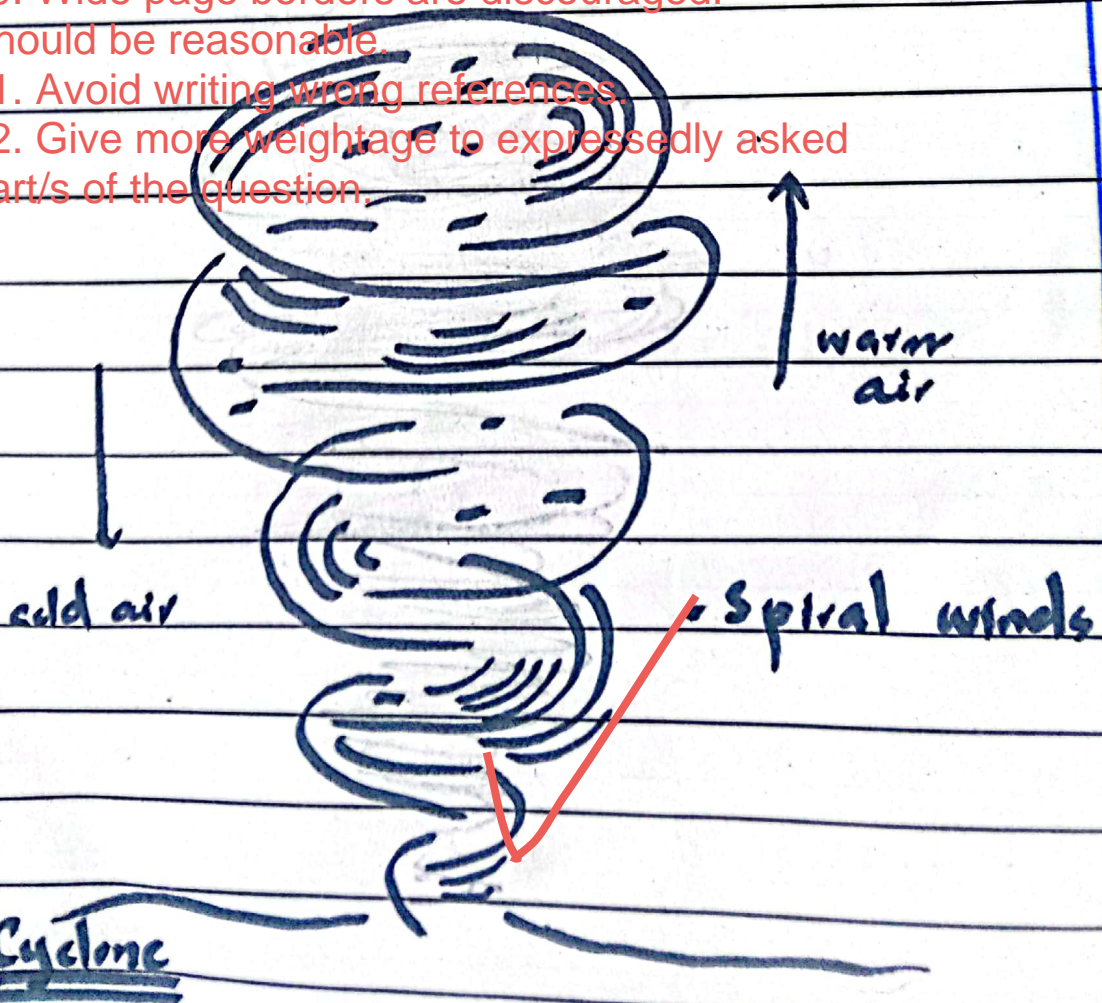 . Wide page borders are discouraged.
hould be reasonable.
1. Avoid writing wrong references.
2. Give more weightage to expressedly asked
art/s of the question.
warm
air
cold air
Spiral winds
Cyclone